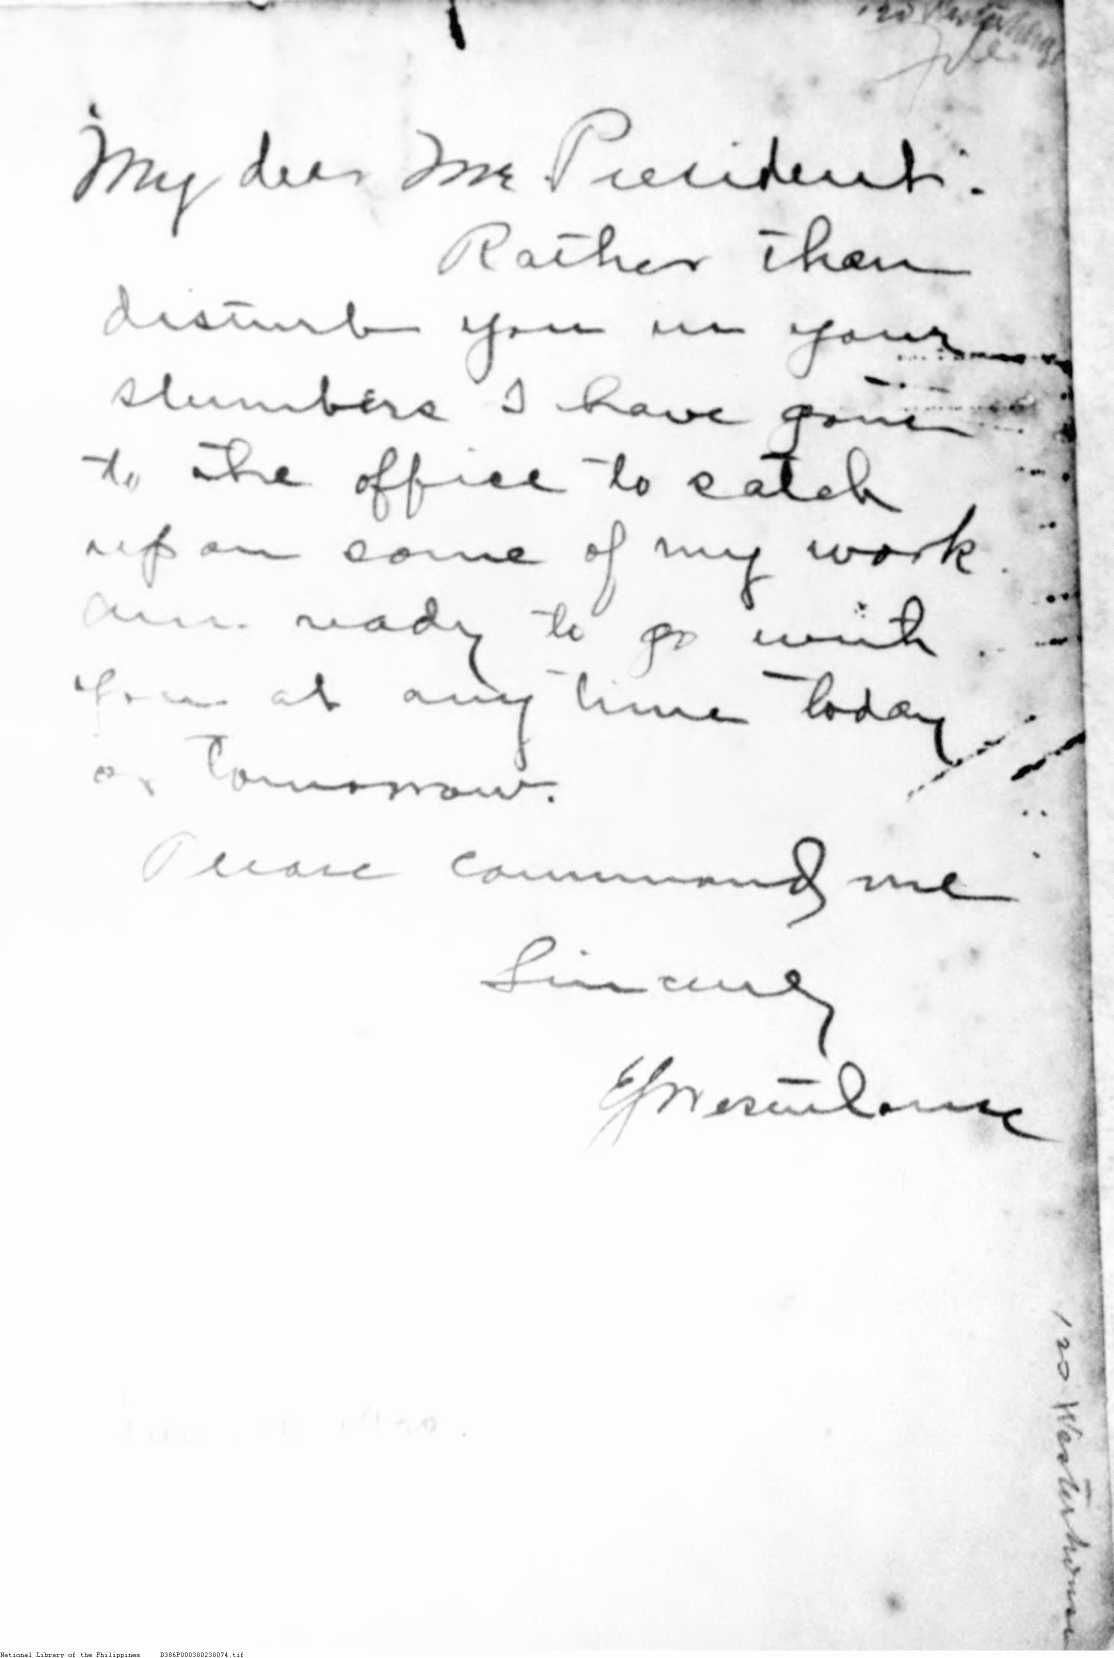 120 Westerhouse
File
My dear Mr President.
Rather than
disturb you in your
slumbers I have gone
to the office to catch
up on some of my work.
Am ready to go with
you at any time today
or tomorrow.
Please command me
Sincerely
EJWesterhouse
120 Westerhouse
National Library of the Philippines D386P000380238074.tif